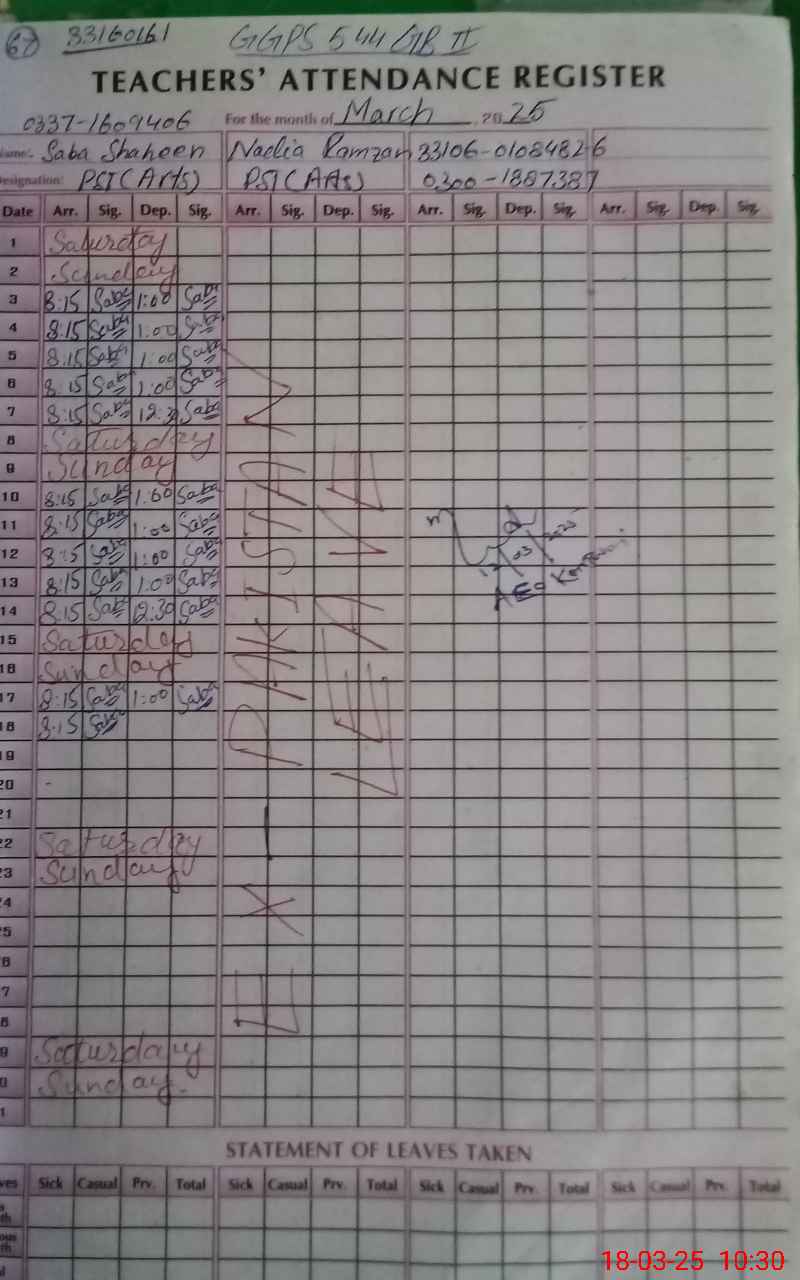 67 33160161 GGPS 544 GB II
TEACHERS' ATTENDANCE REGISTER
0337-1609406 For the month of March 2025
Name:- Saba Shaheen Nadia Ramzan 33106-0108482-6
Designation: PST (Arts) PST (Arts) 0300-1887387
Date Arr. Sig. Dep. Sig. Arr. Sig. Dep. Sig. Arr. Sig. Dep. Sig. Arr. Sig. Dep. Sig.
1 Saturday
2 Sunday
3 8:15 Saba 1:00 Saba
4 8:15 Saba 1:00 Saba
5 8:15 Saba 1:00 Saba
6 8:15 Saba 1:00 Saba
7 8:15 Saba 12:30 Saba
8 Saturday
9 Sunday
10 8:15 Saba 1:00 Saba
11 8:15 Saba 1:00 Saba
12 8:15 Saba 1:00 Saba
13 8:15 Saba 1:00 Saba
14 8:15 Saba 12:30 Saba
15 Saturday
16 Sunday
17 8:15 Saba 1:00 Saba
18 8:15 Saba
19
20 -
21
22 Saturday
23 Sunday
24
25
26
27
28
29 Saturday
30 Sunday
31
EX-PAKISTAN
LEAVE
12 03 2025
AEO
STATEMENT OF LEAVES TAKEN
Sick Casual Prv. Total Sick Casual Prv. Total Sick Casual Prv. Total Sick Casual Prv. Total
18-03-25 10:30